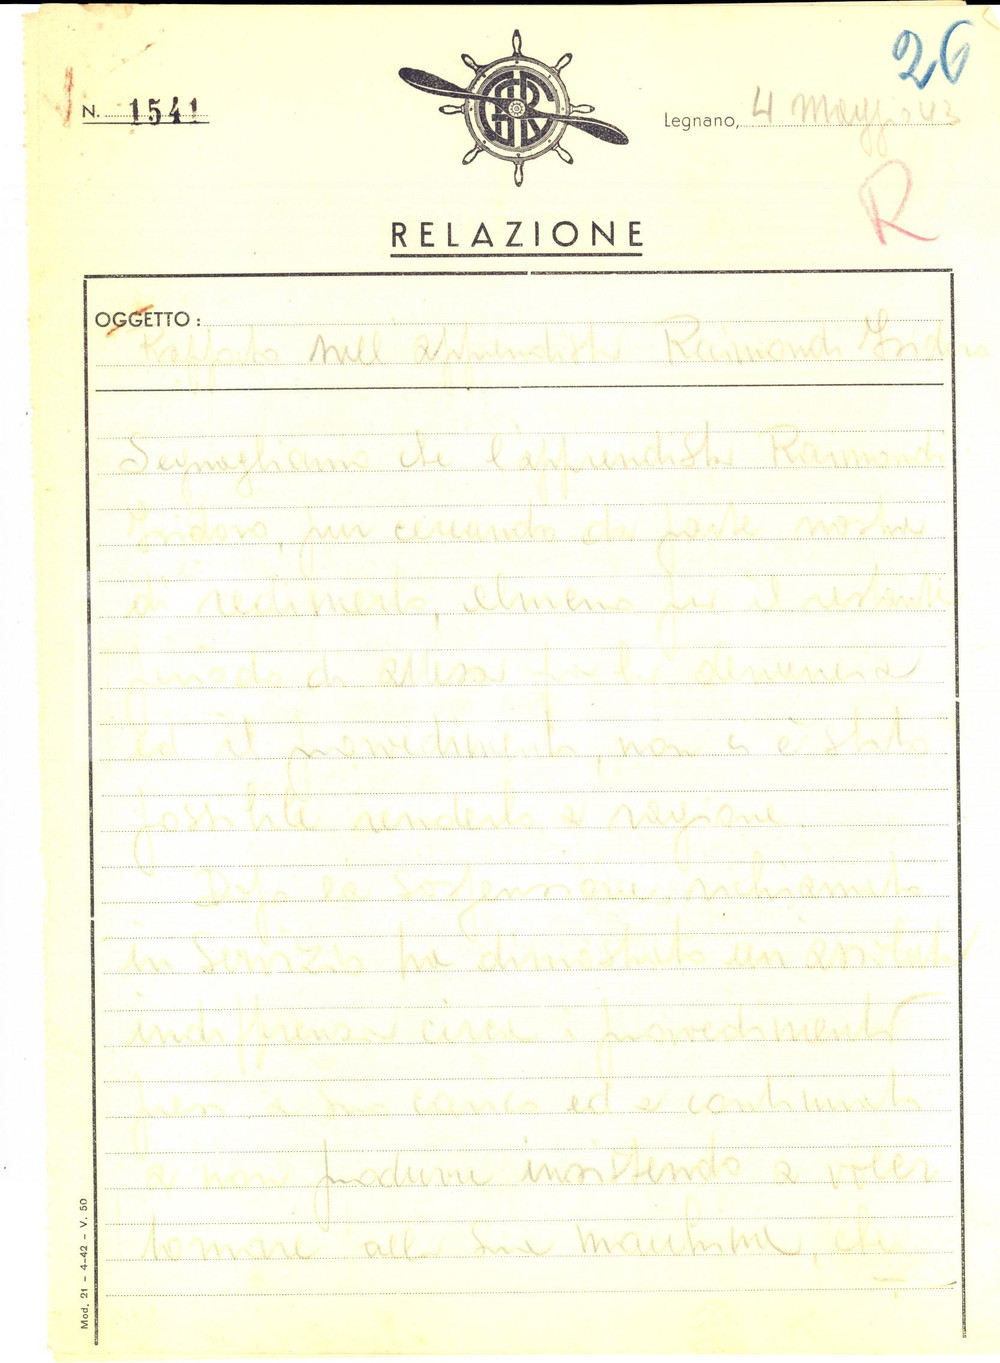 26
N. 1541
Legnano, 4 Maggio 43
R
RELAZIONE
OGGETTO :
Rapporto sull'apprendista Raimondi Isidoro
Segnagliamo che l'apprendista Raimondi
Isidoro, pur cercando da parte nostra
di redimerlo, almeno per il restante
periodo di attesa per la denuncia
ed il provvedimento, non ci è stato
possibile renderlo a ragione.
Dopo la sospensione, richiamato
in servizio ha dimostrato un assoluta
indifferenza circa i provvedimenti
presi a suo carico ed a continuato
a non produrre insistendo a voler
tornare alla sua macchina, che
Mod. 21 - 4-42 - V. 50